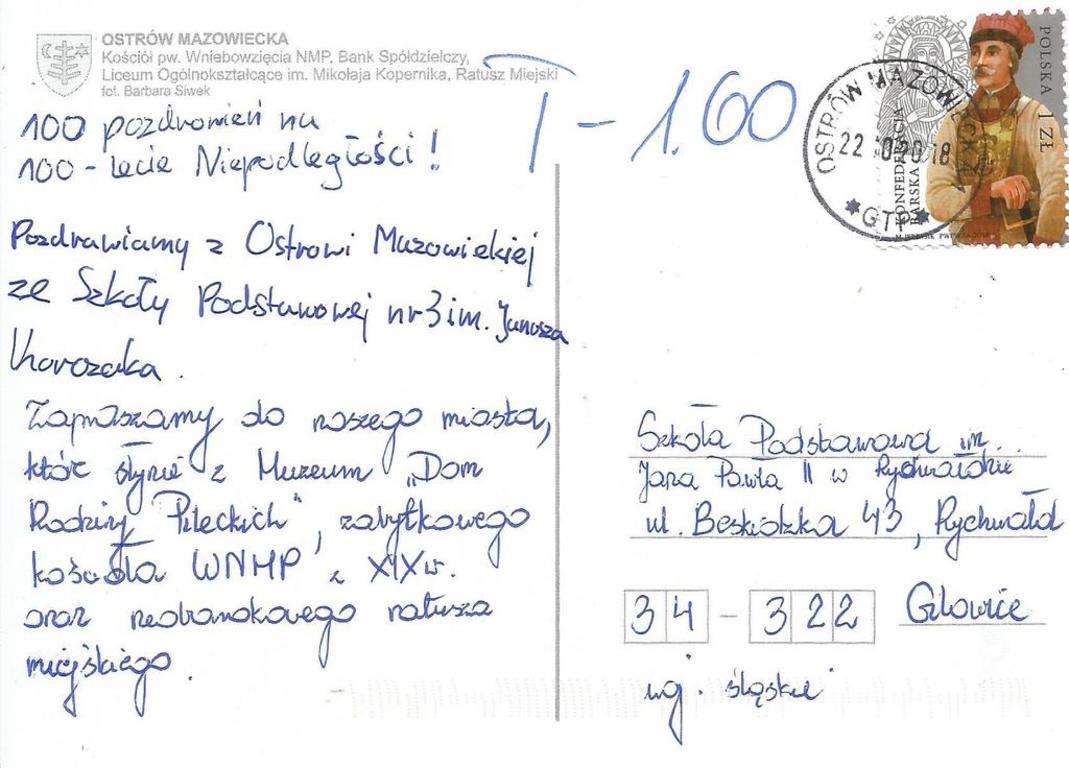 OSTRÓW MAZOWIECKA
Kościół pw. Wniebowzięcia NMP, Bank Spółdzielczy,
Liceum Ogólnokształcące im. Mikołaja Kopernika, Ratusz Miejski
fot. Barbara Siwek
100 pozdrowień na
100-lecie Niepodległości!
Pozdrawiamy z Ostrowi Mazowieckiej
ze Szkoły Podstawowej nr 3 im. Janusza
Korczaka.
Zapraszamy do naszego miasta,
które słynie z Muzeum „Dom
Rodziny Pileckich", zabytkowego
kościoła WNMP z XIXw.
oraz neobarokowego ratusza
miejskiego.
T - 1.60
OSTRÓW MAZOWIECKA 1
22 10 2018
GTP
KONFEDERACJA
BARSKA
POLSKA 1 ZŁ
Szkoła Podstawowa im.
Jana Pawła II w Rychwałdzie
ul. Beskidzka 43, Rychwałd
34-322 Gilowice
woj. śląskie